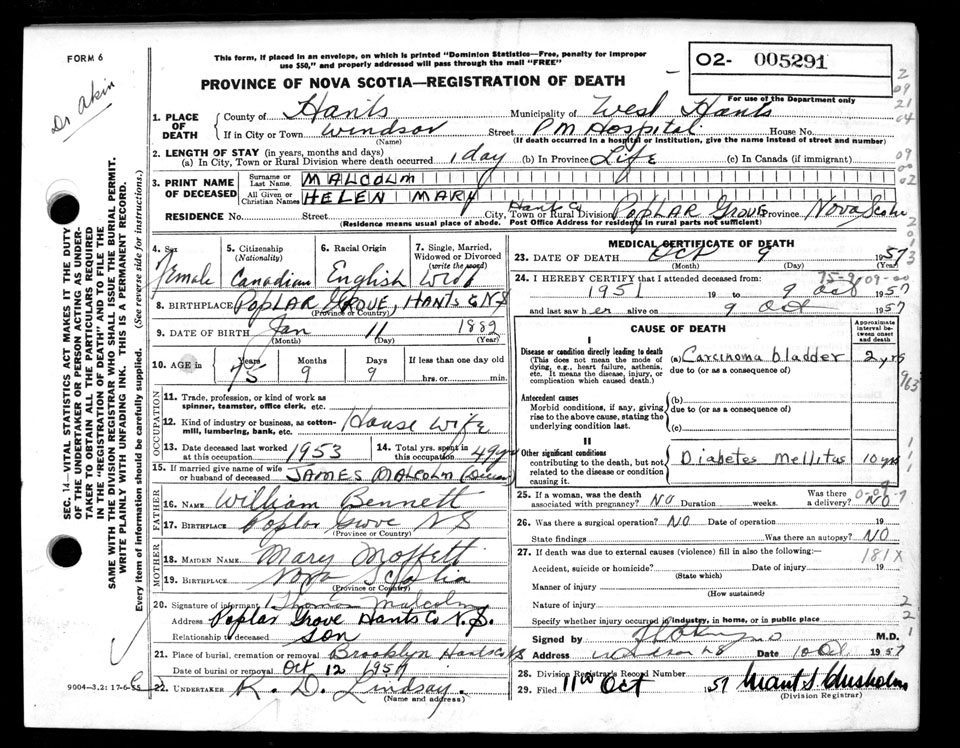 FORM 6
This form, if placed in an envelope, on which is printed "Dominion Statistics—Free, penalty for improper
use $50," and properly addressed will pass through the mail "FREE"
02- 005291
PROVINCE OF NOVA SCOTIA—REGISTRATION OF DEATH
For use of the Department only
Dr Akin
1. PLACE OF DEATH
County of Hants Municipality of West Hants
If in City or Town Windsor Street PM Hospital House No.
(Name) (If death occurred in a hospital or institution, give the name instead of street and number)
2. LENGTH OF STAY (in years, months and days)
(a) In City, Town or Rural Division where death occurred 1 day (b) In Province Life (c) In Canada (if immigrant)
3. PRINT NAME OF DECEASED
Surname or Last Name. MALCOLM
All Given or Christian Names HELEN MARY
RESIDENCE No. Street City, Town or Rural Division Hants Co POPLAR GROVE Province Nova Scotia
(Residence means usual place of abode. Post Office Address for residents in rural parts not sufficient)
4. Sex Female
5. Citizenship (Nationality) Canadian
6. Racial Origin English
7. Single, Married, Widowed or Divorced (write the word) Wid
8. BIRTHPLACE POPLAR GROVE, HANTS Co N.S
(Province or Country)
9. DATE OF BIRTH Jan 11 1882
(Month) (Day) (Year)
10. AGE in Years 75 Months 9 Days 9 If less than one day old hrs. or min.
OCCUPATION
11. Trade, profession, or kind of work as
spinner, teamster, office clerk, etc.
12. Kind of industry or business, as cotton-
mill, lumbering, bank, etc. House Wife
13. Date deceased last worked at this occupation 1953
14. Total yrs. spent in this occupation 49 yrs
15. If married give name of wife
or husband of deceased JAMES MALCOLM
FATHER
16. NAME William Bennett
17. BIRTHPLACE Poplar Grove NS
(Province or Country)
MOTHER
18. MAIDEN NAME Mary Moffett
19. BIRTHPLACE Nova Scotia
(Province or Country)
20. Signature of informant Thomas Malcolm
Address Poplar Grove Hants Co N.S.
Relationship to deceased Son
21. Place of burial, cremation or removal Brooklyn Hants Co NS
Date of burial or removal Oct 12 1957
22. UNDERTAKER R. D. Lindsay.
(Name and address)
9004-3,2: 17-6-55
MEDICAL CERTIFICATE OF DEATH
23. DATE OF DEATH Oct 9 1957
(Month) (Day) (Year)
75-9-09-00
24. I HEREBY CERTIFY that I attended deceased from:
1951 19 to 9 Oct 1957
and last saw her alive on 9 Oct 1957
CAUSE OF DEATH
Approximate interval between onset and death
I
Disease or condition directly leading to death
(This does not mean the mode of dying, e.g., heart failure, asthenia, etc. It means the disease, injury, or complication which caused death.)
(a) Carcinoma bladder 2 yrs
due to (or as a consequence of)
Antecedent causes
Morbid conditions, if any, giving rise to the above cause, stating the underlying condition last.
(b)
due to (or as a consequence of)
(c)
II
Other significant conditions
contributing to the death, but not related to the disease or condition causing it.
Diabetes Mellitus 10 yrs
25. If a woman, was the death associated with pregnancy? NO Duration weeks. Was there a delivery? NO
26. Was there a surgical operation? NO Date of operation 19
State findings Was there an autopsy? NO
27. If death was due to external causes (violence) fill in also the following:—
181X
Accident, suicide or homicide? Date of injury 19
(State which)
Manner of injury
(How sustained)
Nature of injury
Specify whether injury occurred in industry, in home, or in public place
Signed by M.D.
Address Windsor NS Date 10 Oct 1957
28. Division Registrar's Record Number
29. Filed 11th Oct 1957 Grant S. Chisholm
(Division Registrar)
SEC. 14—VITAL STATISTICS ACT MAKES IT THE DUTY
OF THE UNDERTAKER OR PERSON ACTING AS UNDER-
TAKER TO OBTAIN ALL THE PARTICULARS REQUIRED
IN THE "REGISTRATION OF DEATH" AND TO FILE THE
SAME WITH THE DIVISION REGISTRAR WHO SHALL ISSUE THE BURIAL PERMIT.
WRITE PLAINLY WITH UNFADING INK. THIS IS A PERMANENT RECORD.
Every item of information should be carefully supplied. (See reverse side for instructions.)